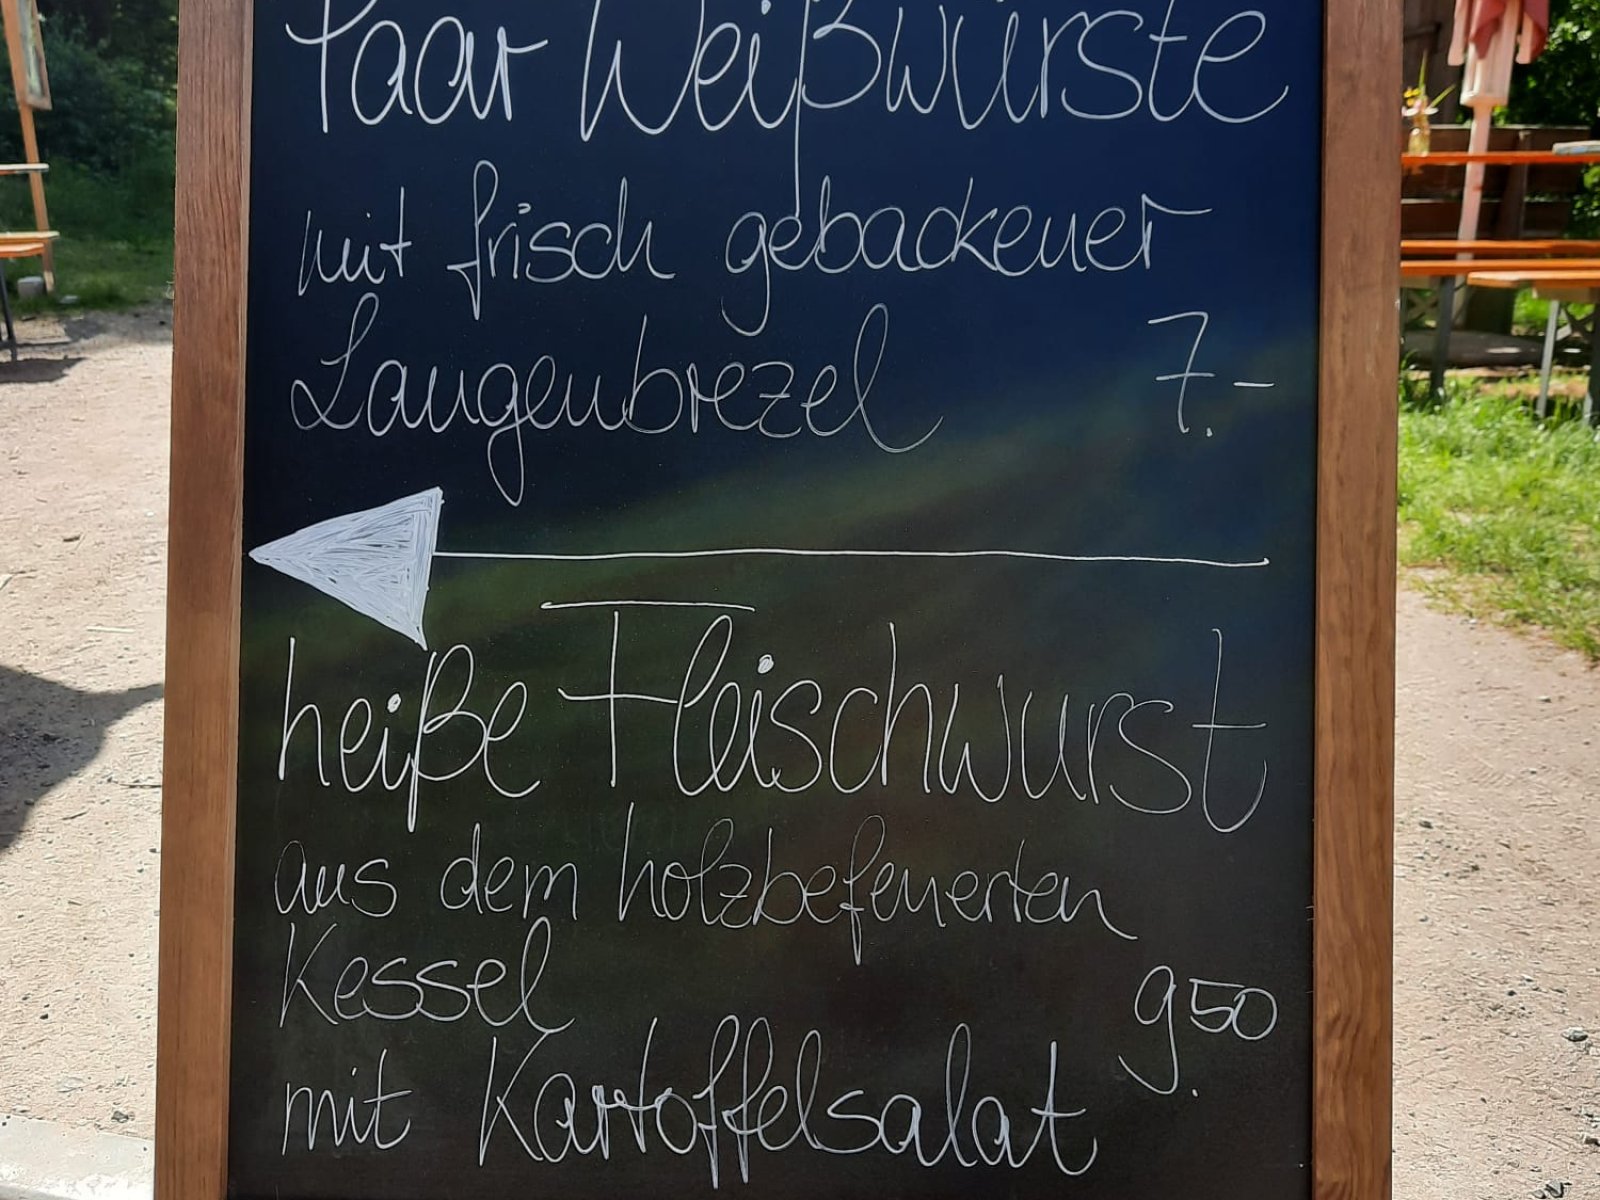 Paar Weißwürste
mit frisch gebackener
Laugenbrezel 7.-
heiße Fleischwurst
aus dem holzbefeuerten
Kessel 9.50
mit Kartoffelsalat